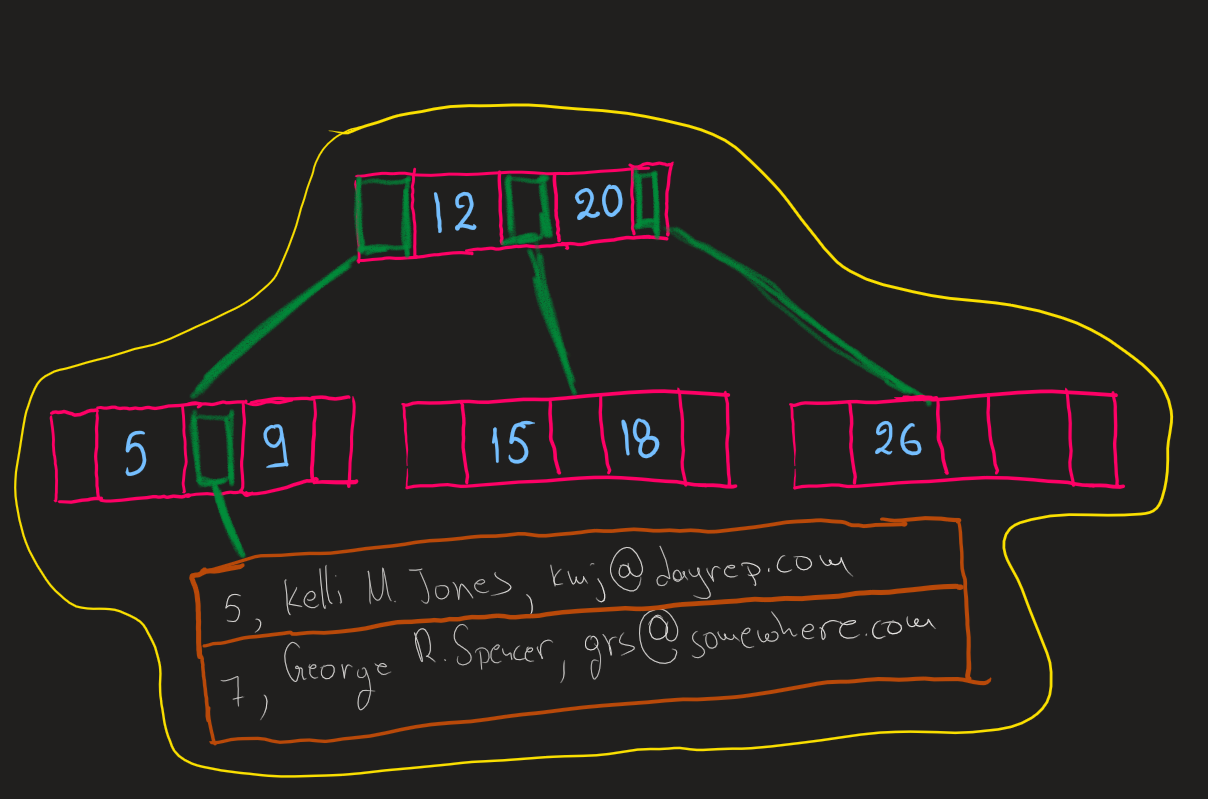 12 20
5 9 15 18 26
5, Kelli M. Jones, kmj@dayrep.com
7, George R. Spencer, grs@somewhere.com